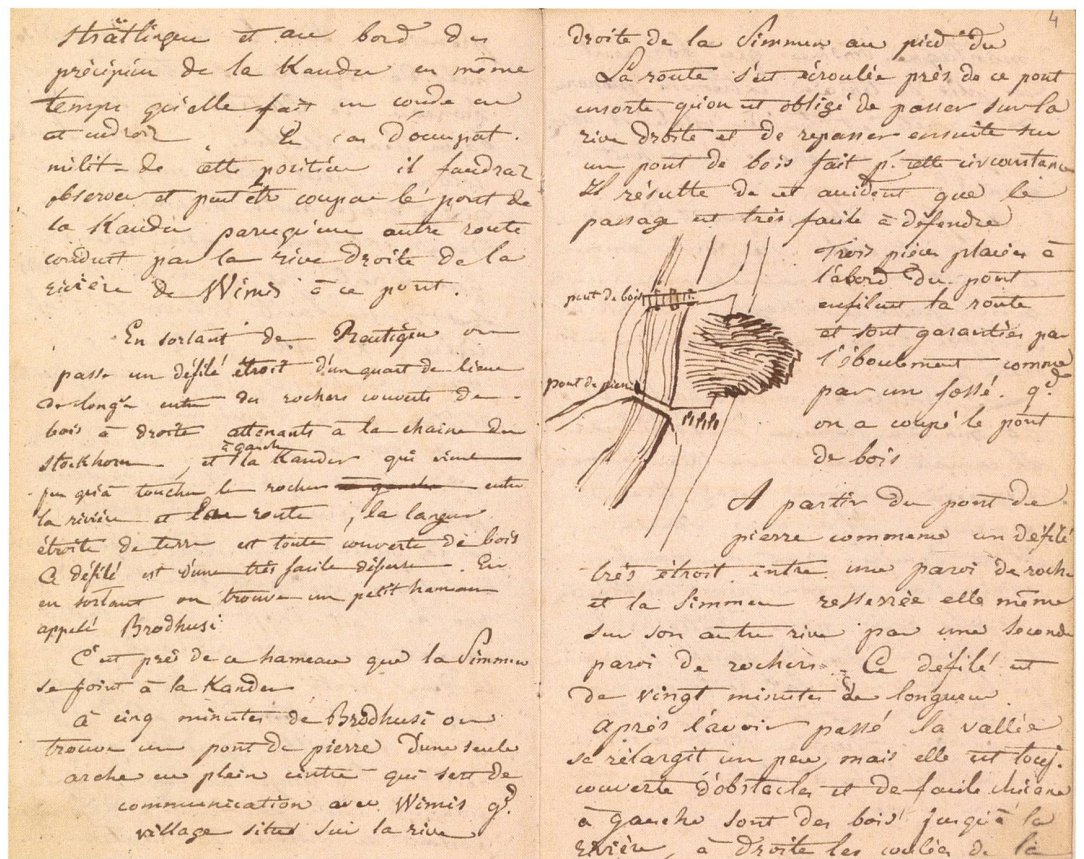 strättligen et au bord du
précipice de la Kander en même
temps qu'elle fait un coude en
cet endroit En cas d'occupat.
milit. de cette position il faudrait
observer et peut être couper le pont de
la Kander parcequ'une autre route
conduit par la rive droite de la
rivière de Wimis à ce pont.
En sortant de Reutigen on
passe un défilé étroit d'un quart de lieue
de longr. entre des rochers couverts de
bois à droite attenants à la chaine du
à gauche
stockhorn, et la Kander qui vient
jusqu'à toucher le rocher entre
la rivière et la route, la largeur
étroite de terre est toute couverte de bois
Ce défilé est d'une très facile défense. En
en sortant on trouve un petit hameau
appelé Brodhusi
C'est près de ce hameau que la Simmen
se joint à la Kander
à cinq minutes de Brodhusi on
trouve un pont de pierre d'une seule
arche en plein cintre qui sert de
communication avec Wimis gd.
village situé sur la rive
4
droite de la Simmen au pied du
La route s'est écroulée près de ce pont
ensorte qu'on est obligé de passer sur la
rive droite et de repasser ensuite sur
un pont de bois fait p. cette circonstance
Il résulte de cet accident que le
passage est très facile à défendre
Trois pièces placées à
l'abord du pont
enfilent la route
et sont garanties par
l'éboulement comme
par un fossé. qd.
on a coupé le pont
de bois
pont de bois
pont de pierre
A partir du pont de
pierre commence un défilé
très étroit entre une paroi de roche
et la Simmen resserrée elle même
sur son autre rive par une seconde
paroi de rochers. Ce défilé est
de vingt minutes de longueur
Après l'avoir passé la vallée
se rélargit un peu, mais elle est touj.
couverte d'obstacles et de facile chicane
à gauche sont des bois jusqu'à la
rivière, à droite les coulées de la